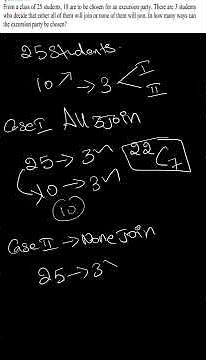 From a class of 25 students, 10 are to be chosen for an excursion party. There are 3 students
who decide that either all of them will join or none of them will join. In how many ways can
the excursion party be chosen?
25 Students.
10 → 3 < I
II
Case I All 3 Join
25 → 3 22C7
10 → 3
10
Case II → None Join
25 → 3